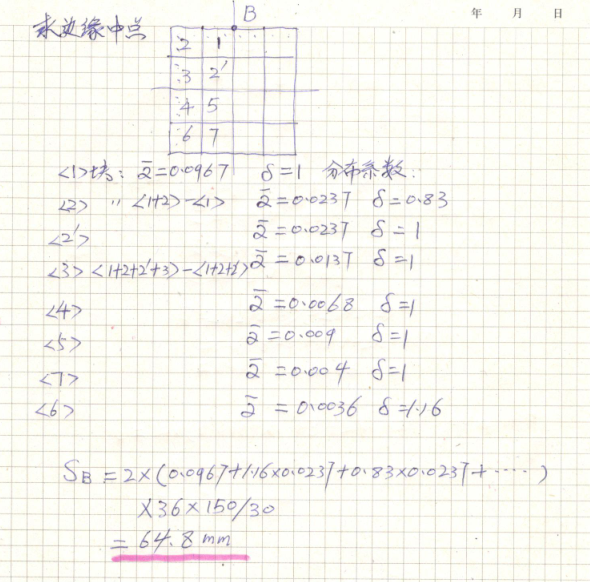 年 月 日
求边缘中点
B
2 1
3 2'
4 5
6 7
<1>块: ᾱ=0.0967 δ=1 分布系数:
<2> " <1+2>-<1> ᾱ=0.0237 δ=0.83
<2'> ᾱ=0.0237 δ=1
<3> <1+2+2'+3>-<1+2+2'> ᾱ=0.0137 δ=1
<4> ᾱ=0.0068 δ=1
<5> ᾱ=0.009 δ=1
<7> ᾱ=0.004 δ=1
<6> ᾱ=0.0036 δ=1.16
SB=2×(0.0967+1.16×0.0237+0.83×0.0237+·····)
×36×150/30
=64.8mm